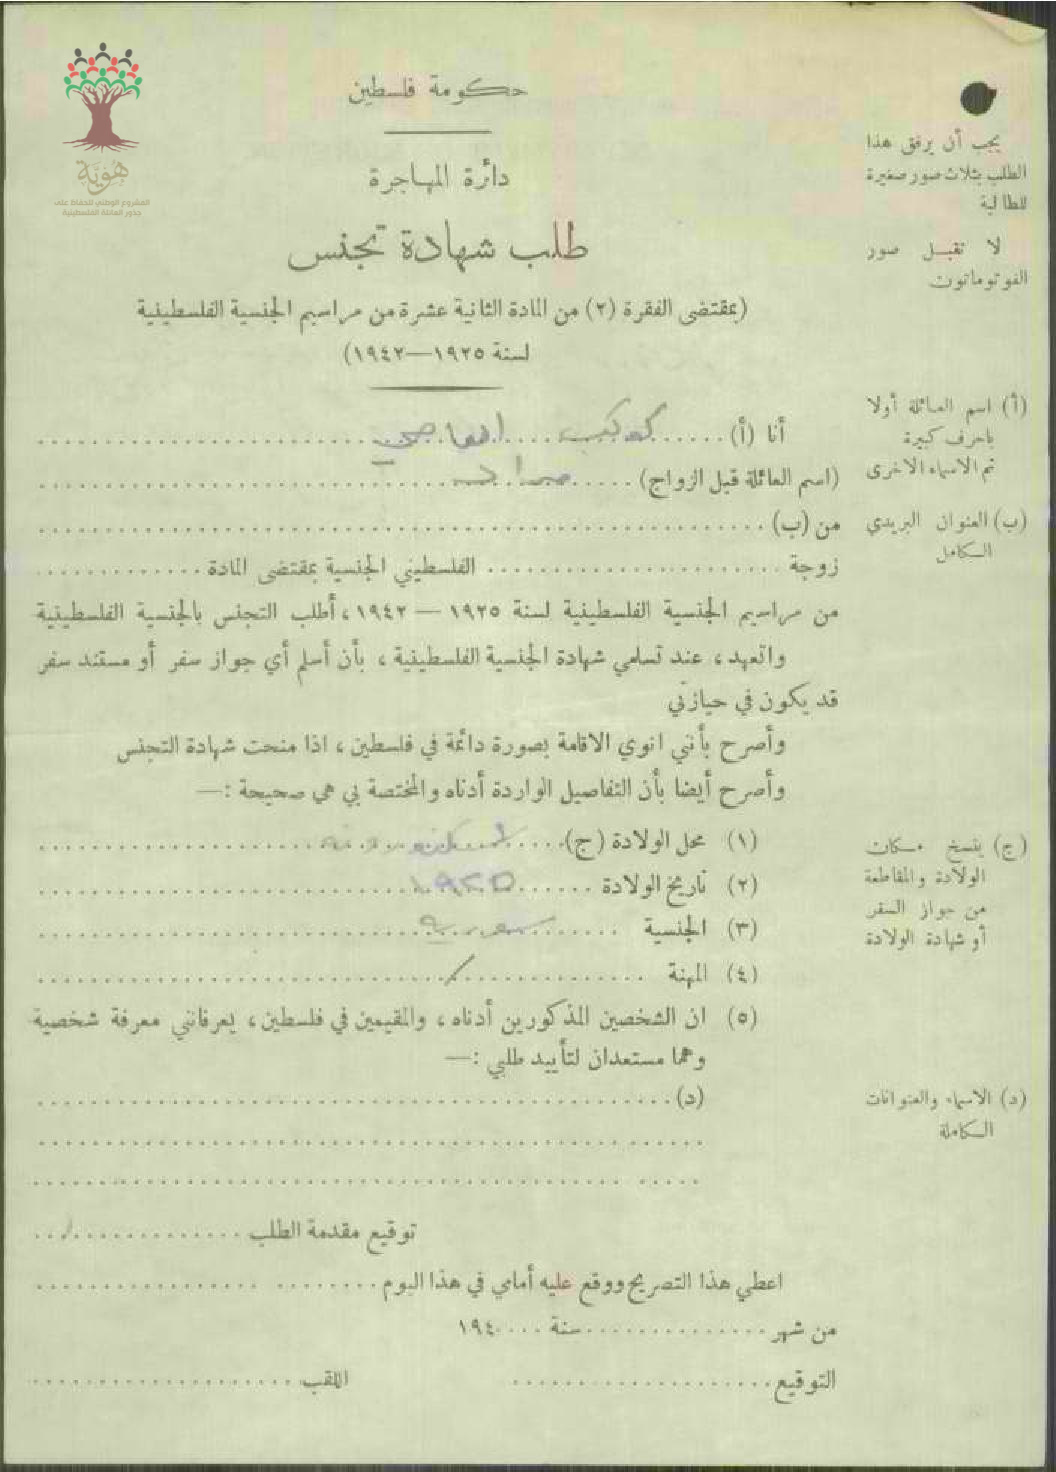 هوية
المشروع الوطني للحفاظ على
جذور العائلة الفلسطينية
حكومة فلسطين
دائرة المهاجرة
طلب شهادة تجنس
(بمقتضى الفقرة (٢) من المادة الثانية عشرة من مراسيم الجنسية الفلسطينية
لسنة ١٩٢٥—١٩٤٢)
يجب أن يرفق هذا
الطلب بثلاث صور صغيرة
للطالبة
لا تقبل صور
الفوتوماتون
أنا (أ) كوكب
(اسم العائلة قبل الزواج) مراد
من (ب)
زوجة الفلسطيني الجنسية بمقتضى المادة
من مراسيم الجنسية الفلسطينية لسنة ١٩٢٥ — ١٩٤٢، أطلب التجنس بالجنسية الفلسطينية
واتعهد، عند تسلمي شهادة الجنسية الفلسطينية، بأن أسلم أي جواز سفر أو مستند سفر
قد يكون في حيازتي
وأصرح بأنني انوي الاقامة بصورة دائمة في فلسطين، اذا منحت شهادة التجنس
وأصرح أيضا بأن التفاصيل الواردة أدناه والمختصة بي هي صحيحة :—
(أ) اسم العائلة أولا
باحرف كبيرة
ثم الاسماء الاخرى
(ب) العنوان البريدي
الكامل
(١) محل الولادة (ج) اسكندرونه
(٢) تاريخ الولادة ١٩٢٥
(٣) الجنسية سورية
(٤) المهنة /
(٥) ان الشخصين المذكورين أدناه، والمقيمين في فلسطين، يعرفانني معرفة شخصية
وهما مستعدان لتأييد طلبي :—
(د)
(ج) ينسخ مكان
الولادة والمقاطعة
من جواز السفر
أو شهادة الولادة
(د) الاسماء والعنوانات
الكاملة
توقيع مقدمة الطلب
اعطي هذا التصريح ووقع عليه أمامي في هذا اليوم
من شهر سنة ١٩٤٠
التوقيع اللقب